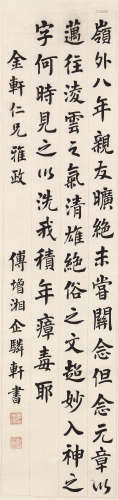 嶺外八年親友曠絕未嘗關念但念元章以
邁往淩雲之氣清雄絕俗之文超妙入神之
字何時見之以洗我積年瘴毒耶
金軒仁兄雅政
傅增湘企驎軒書